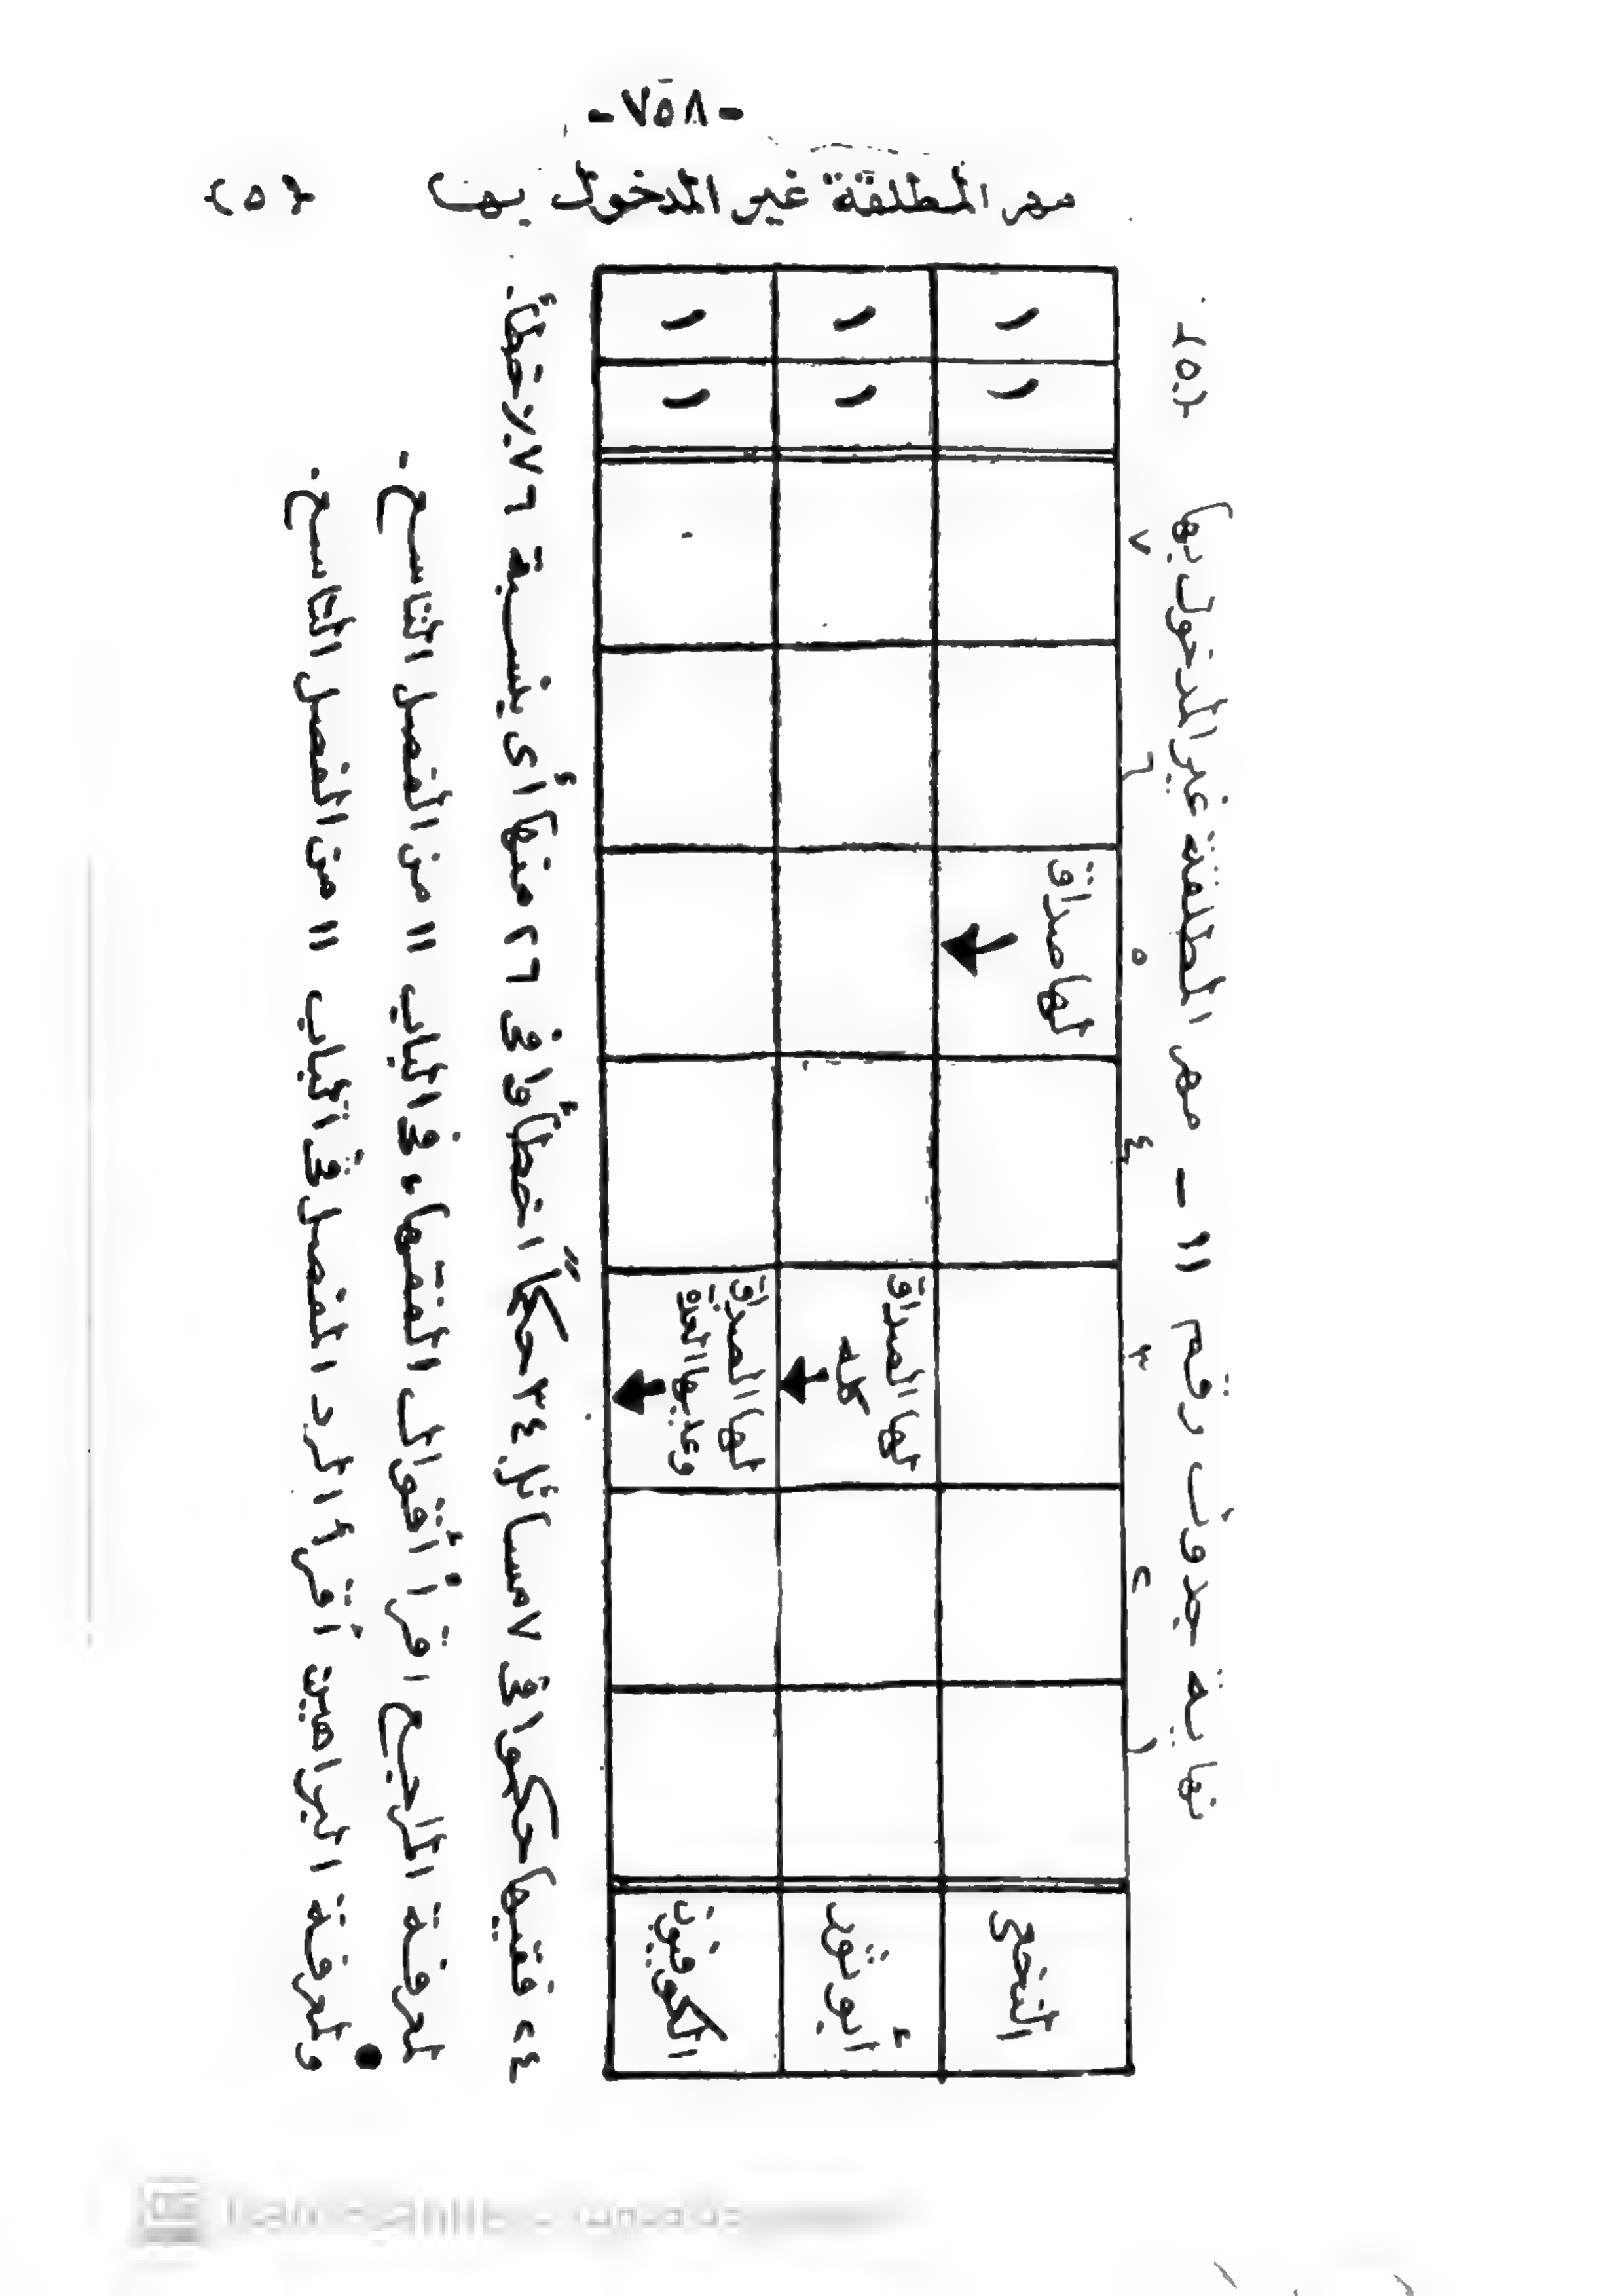 -٧٥٨-
مهر المطلقة غير المدخول بها (٥٤)
نهاية جدول رقم ١١ - مهر المطلقة غير المدخول بها
١ ٢ ٣ ٤ ٥ ٦ ٧
النخعى لها صداق ١ ١
أبو ثور لها الصداق كله ١ ١
الكوفيون لها الصداق وعليها العدة ١ ١
٢٤ فقيها حكموا فى ٧ مسائل ٣٤ حكماً اخطأوا فى ٢٦ منها أى بنسبة ٧٦٪ خطأ.
لمعرفة الراجح اقرأ أقوال الفقهاء فى الباب ١١ من الفصل التاسع -
ولمعرفة البراهين أقرأ الرد المفصل فى الباب ١١ من الفصل التاسع.